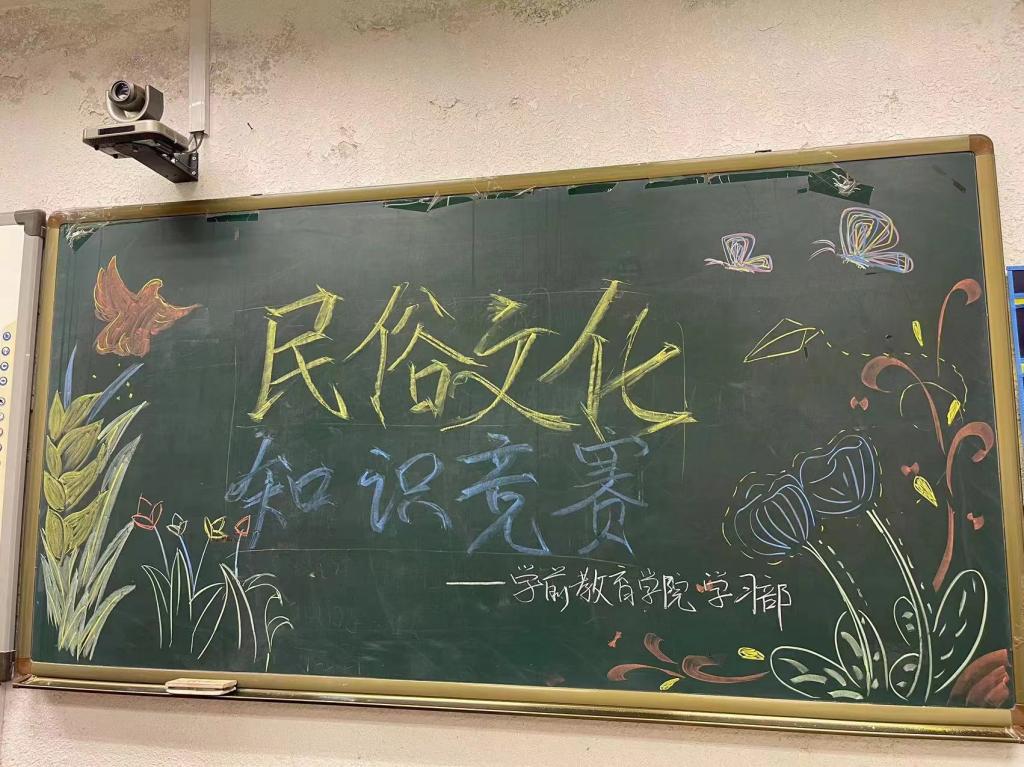 民俗文化
知识竞赛
——学前教育学院学习部